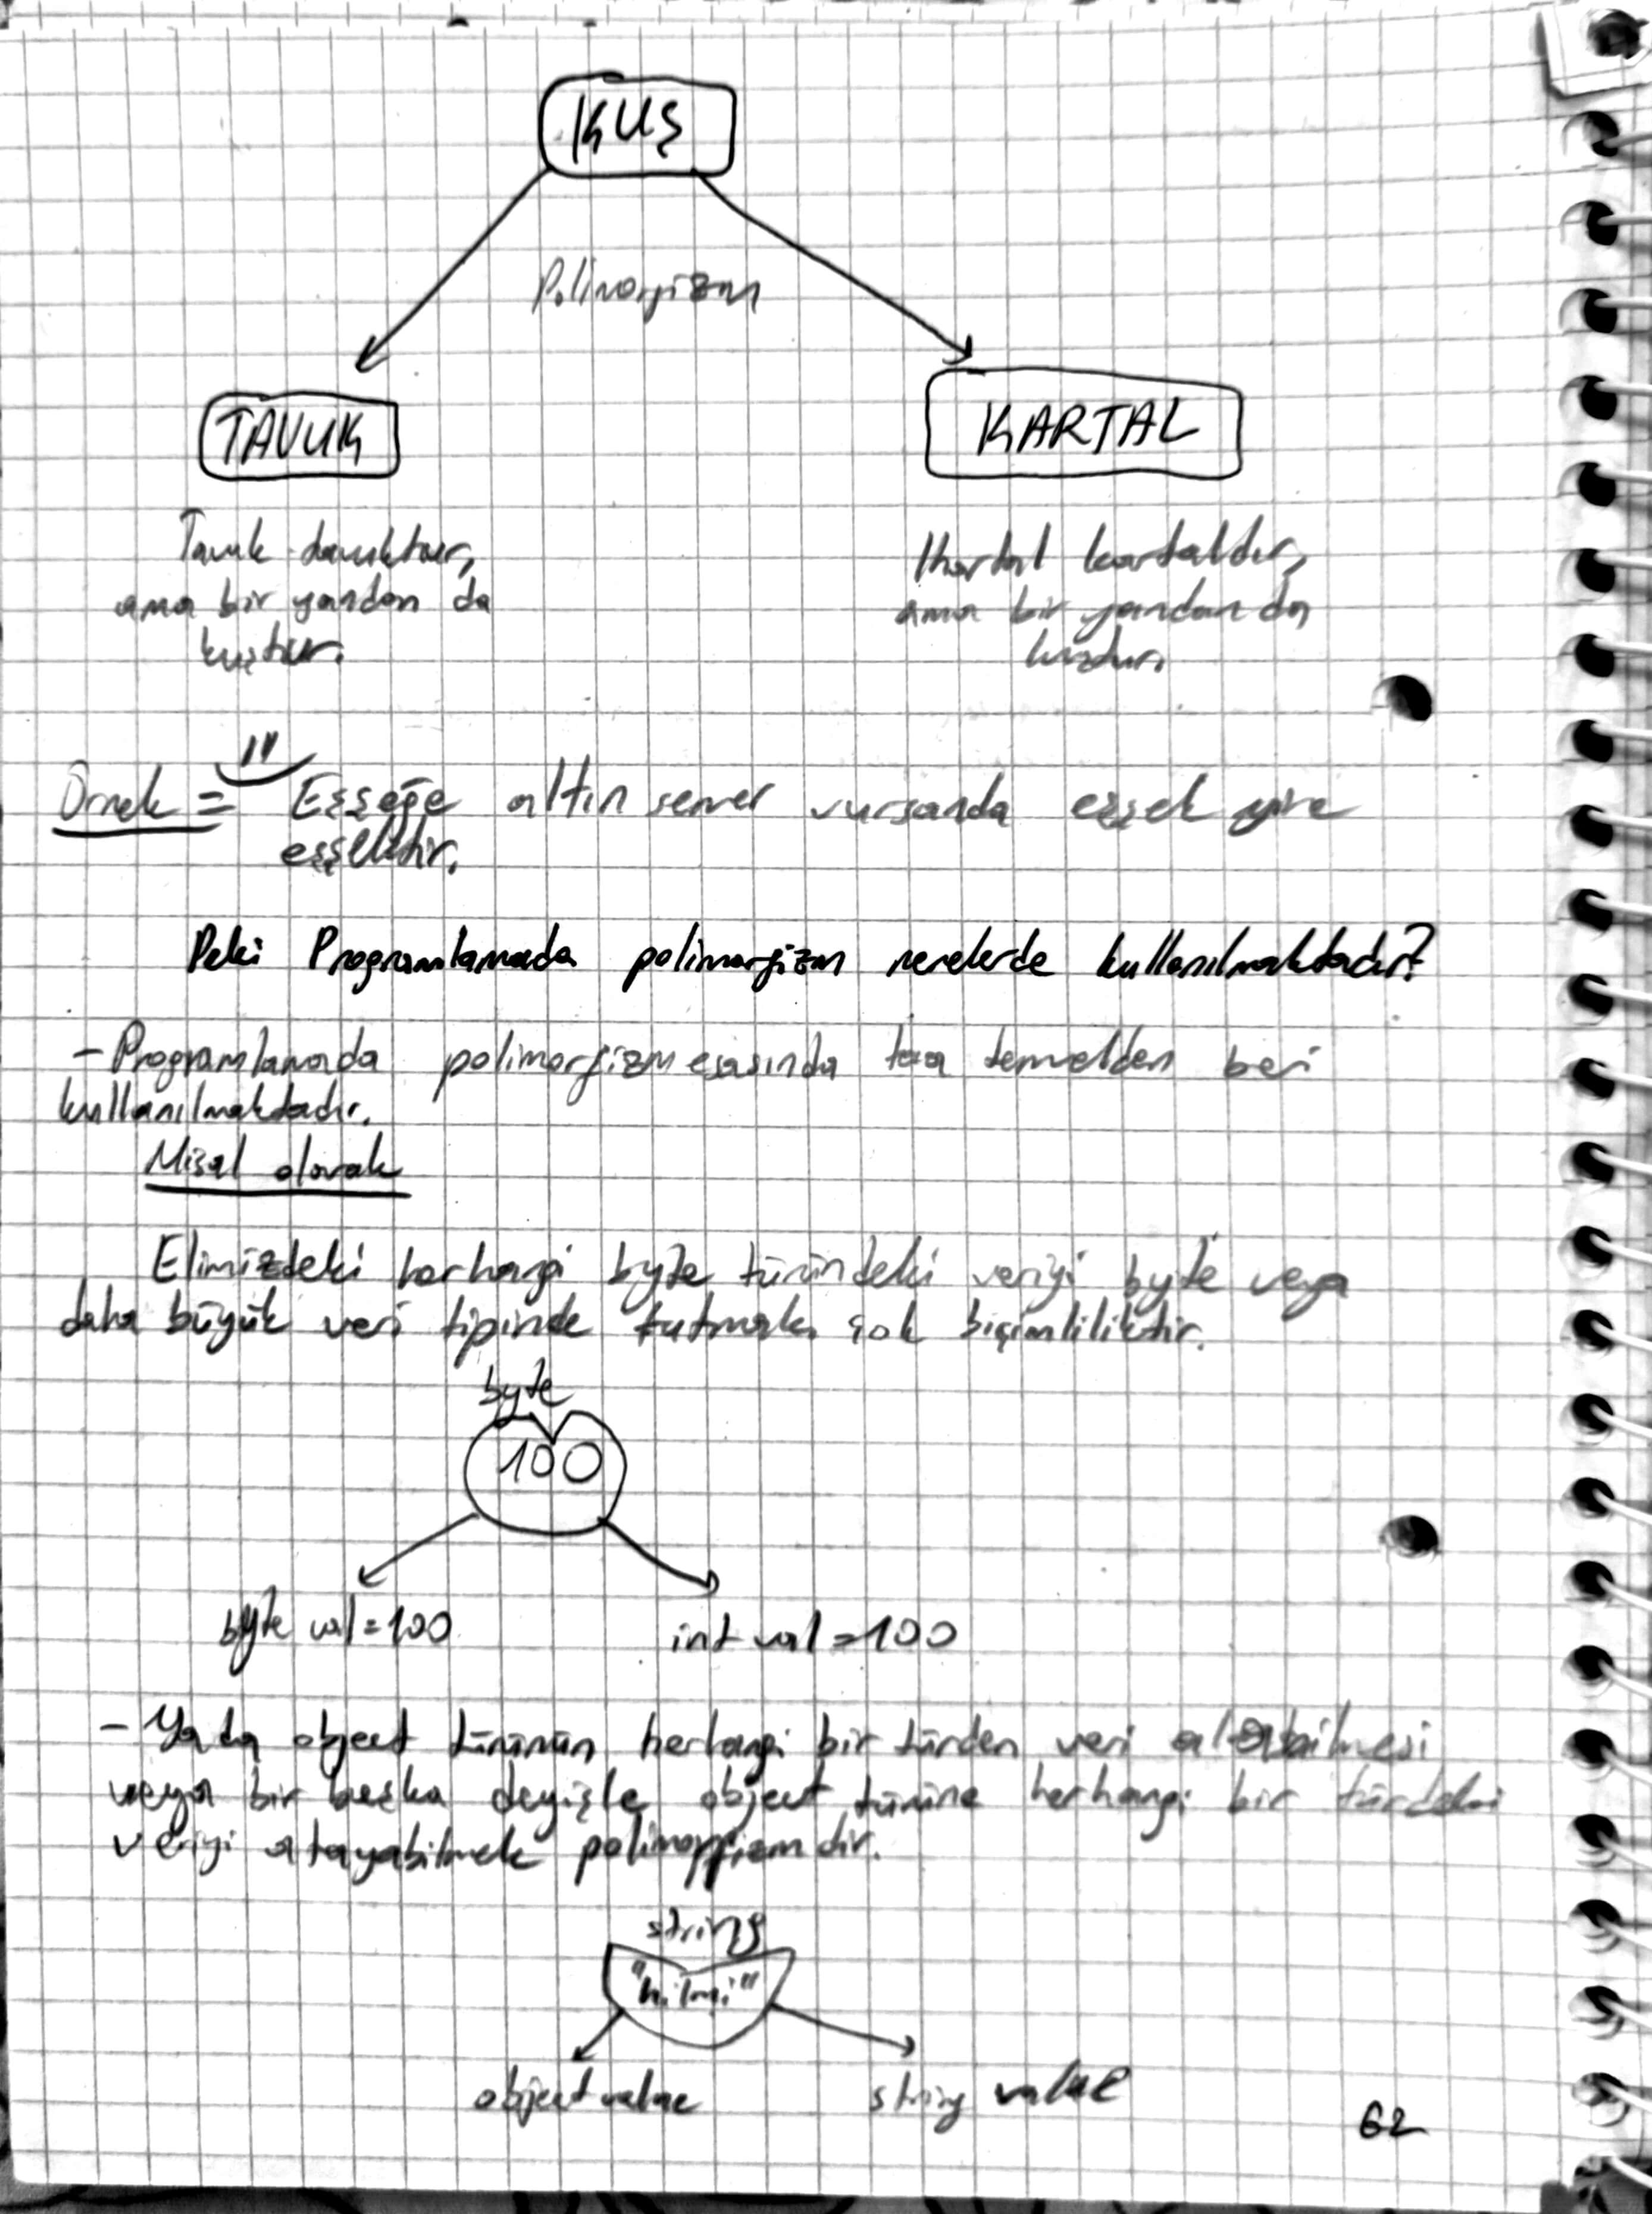 KUŞ
Polimorfizm
TAVUK
KARTAL
Tavuk tavuktur,
ama bir yandan da
kuştur.
Kartal kartaldır,
ama bir yandan da
kuştur.
Örnek = Eşşeğe altın semer vursanda eşşek yine
eşşektir.
Peki Programlamada polimorfizm nerelerde kullanılmaktadır?
- Programlamada polimorfizm esasında taa temelden beri
kullanılmaktadır.
Misal olarak
Elimizdeki herhangi byte türündeki veriyi byte veya
daha büyük veri tipinde tutmak çok biçimliliktir.
byte
100
byte val=100
int val=100
- Ya da object türünün herhangi bir türden veri alabilmesi
veya bir başka deyişle object türüne herhangi bir türdeki
veriyi atayabilmek polimorfizmdir.
string
"hilmi"
object value
string value
62